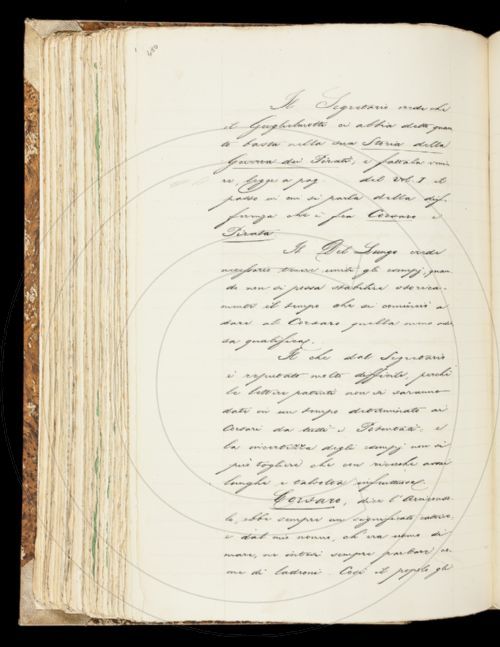 480
Il Segretario crede che
il Guglielmotti ci abbia detto quan
to basta nella sua Storia della
Guerra dei Pirati, e fattala veni
re legge a pag. del Vol. I il
passo in cui si parla della dif-
ferenza che è fra Corsaro e
Pirata.
Il Del Lungo crede
necessario tenere uniti gli esempj, quan
do non si possa stabilire storica-
mente il tempo che si cominciò a
dare al Corsaro quella meno odio
sa qualifica.
Il che dal Segretario
è reputato molto difficile, perchè
le lettere patenti non si saranno
date in un tempo determinato ai
Corsari da tutti i Potentati: e
la incertezza degli esempj non si
può togliere che con ricerche assai
lunghe e talvolta infruttuose.
Corsaro, dice l'Arciconso
lo, ebbe sempre un significato cattivo,
e dal mio nonno, che era uomo di
mare, ne intesi sempre parlare co-
me di ladroni. Così il popolo gli